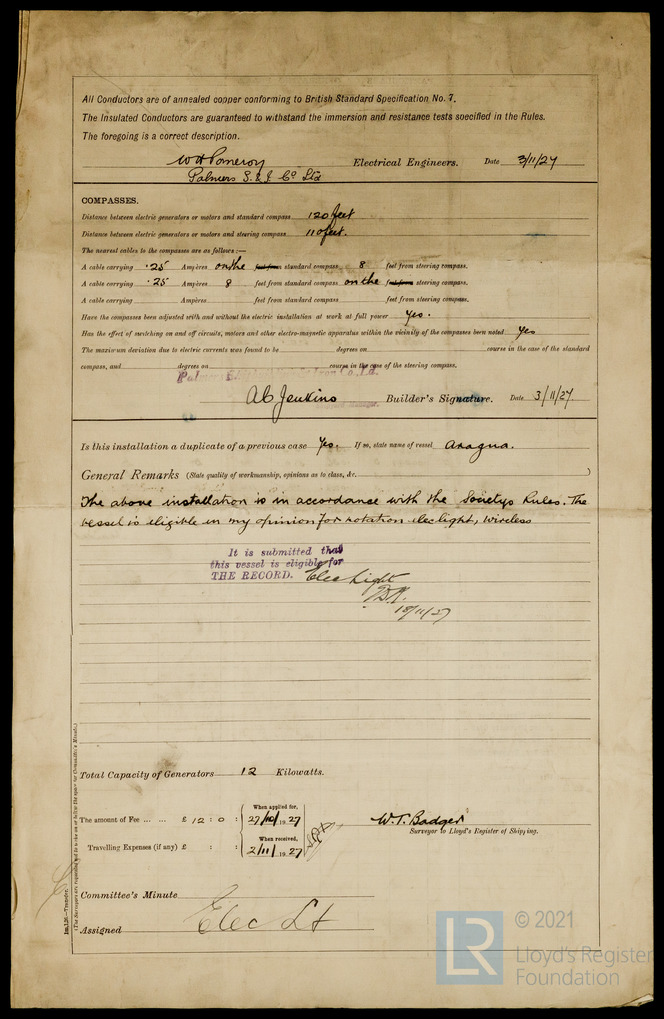 All Conductors are of annealed copper conforming to British Standard Specification No. 7.
The Insulated Conductors are guaranteed to withstand the immersion and resistance tests specified in the Rules.
The foregoing is a correct description.
W H Pomeroy Electrical Engineers. Date 3/11/27
Palmers S. & I. Co Ltd
COMPASSES.
Distance between electric generators or motors and standard compass 120 feet
Distance between electric generators or motors and steering compass 110 feet.
The nearest cables to the compasses are as follows :—
A cable carrying .25 Ampères on the feet from standard compass 8 feet from steering compass.
A cable carrying .25 Ampères 8 feet from standard compass on the feet from steering compass.
A cable carrying Ampères feet from standard compass feet from steering compass.
Have the compasses been adjusted with and without the electric installation at work at full power yes.
Has the effect of switching on and off circuits, motors and other electro-magnetic apparatus within the vicinity of the compasses been noted yes
The maximum deviation due to electric currents was found to be degrees on course in the case of the standard
compass, and degrees on course in the case of the steering compass.
Co., Ld.
A C Jenkins Builder's Signature. Date 3/11/27
Is this installation a duplicate of a previous case Yes. If so, state name of vessel Aragna.
General Remarks (State quality of workmanship, opinions as to class, &c. )
The above installation is in accordance with the Societys Rules. The
vessel is eligible in my opinion for notation elec light, wireless
It is submitted that
this vessel is eligible for
THE RECORD. Elec Light
18/11/27
Total Capacity of Generators 12 Kilowatts.
The amount of Fee ... ... £ 12 : 0 :
When applied for,
27/10/19 27
Travelling Expenses (if any) £ : :
When received,
2/11/19 27
W. T. Badger
Surveyor to Lloyd's Register of Shipping.
Committee's Minute
Assigned Elec Lt
1m.1.26.—Transfer.
© 2021
LR
Lloyd's Register
Foundation